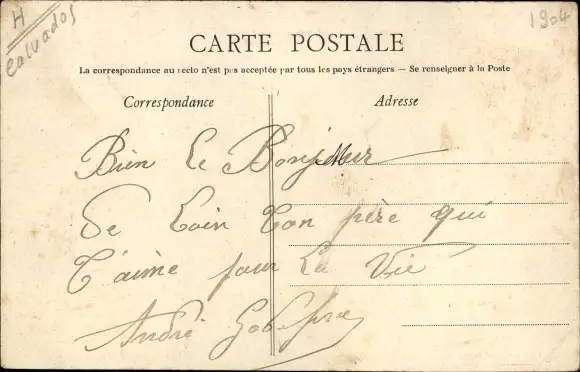 H
Calvados
1904
CARTE POSTALE
La correspondance au recto n'est pas acceptée par tous les pays étrangers — Se renseigner à la Poste
Correspondance
Adresse
Bien Le Bonjour
De Loin Ton père qui
T'aime pour La Vie
André